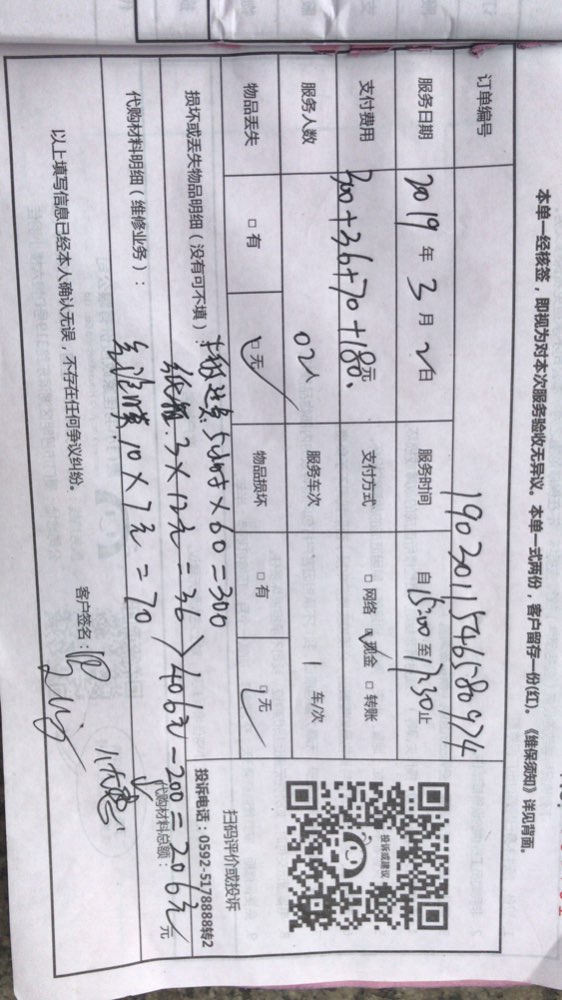 本单一经核签，即视为对本次服务验收无异议。本单一式两份，客户留存一份(红)。《维保须知》详见背面。
订单编号 1903011546580974
服务日期 2019 年 3 月 2 日 服务时间 自 15:00 至 17:30 止
支付费用 300+36+70+180. 元 支付方式 □ 网络 □ 现金 □ 转账
服务人数 02人 服务车次 1 车/次
物品丢失 □ 有 □ 无 物品损坏 □ 有 □ 无
损坏或丢失物品明细（没有可不填）： 5小时×60=300
纸箱: 3×12元=36 406元-200=206元
代购材料明细（维修业务）：
10×7元=70
代购材料总额： 元
以上填写信息已经本人确认无误，不存在任何争议纠纷。
客户签名：
投诉或建议
扫码评价或投诉
投诉电话：0592-5178888转2